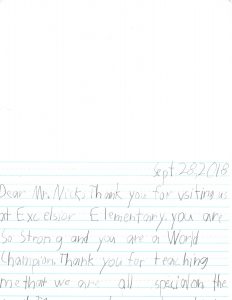 Sept. 28, 2018
Dear Mr. Nick, Thank you for visiting us
at Excelsior Elementary. you are
So Strong and you are a World
Champion. Thank you for teaching
me that we are all special on the